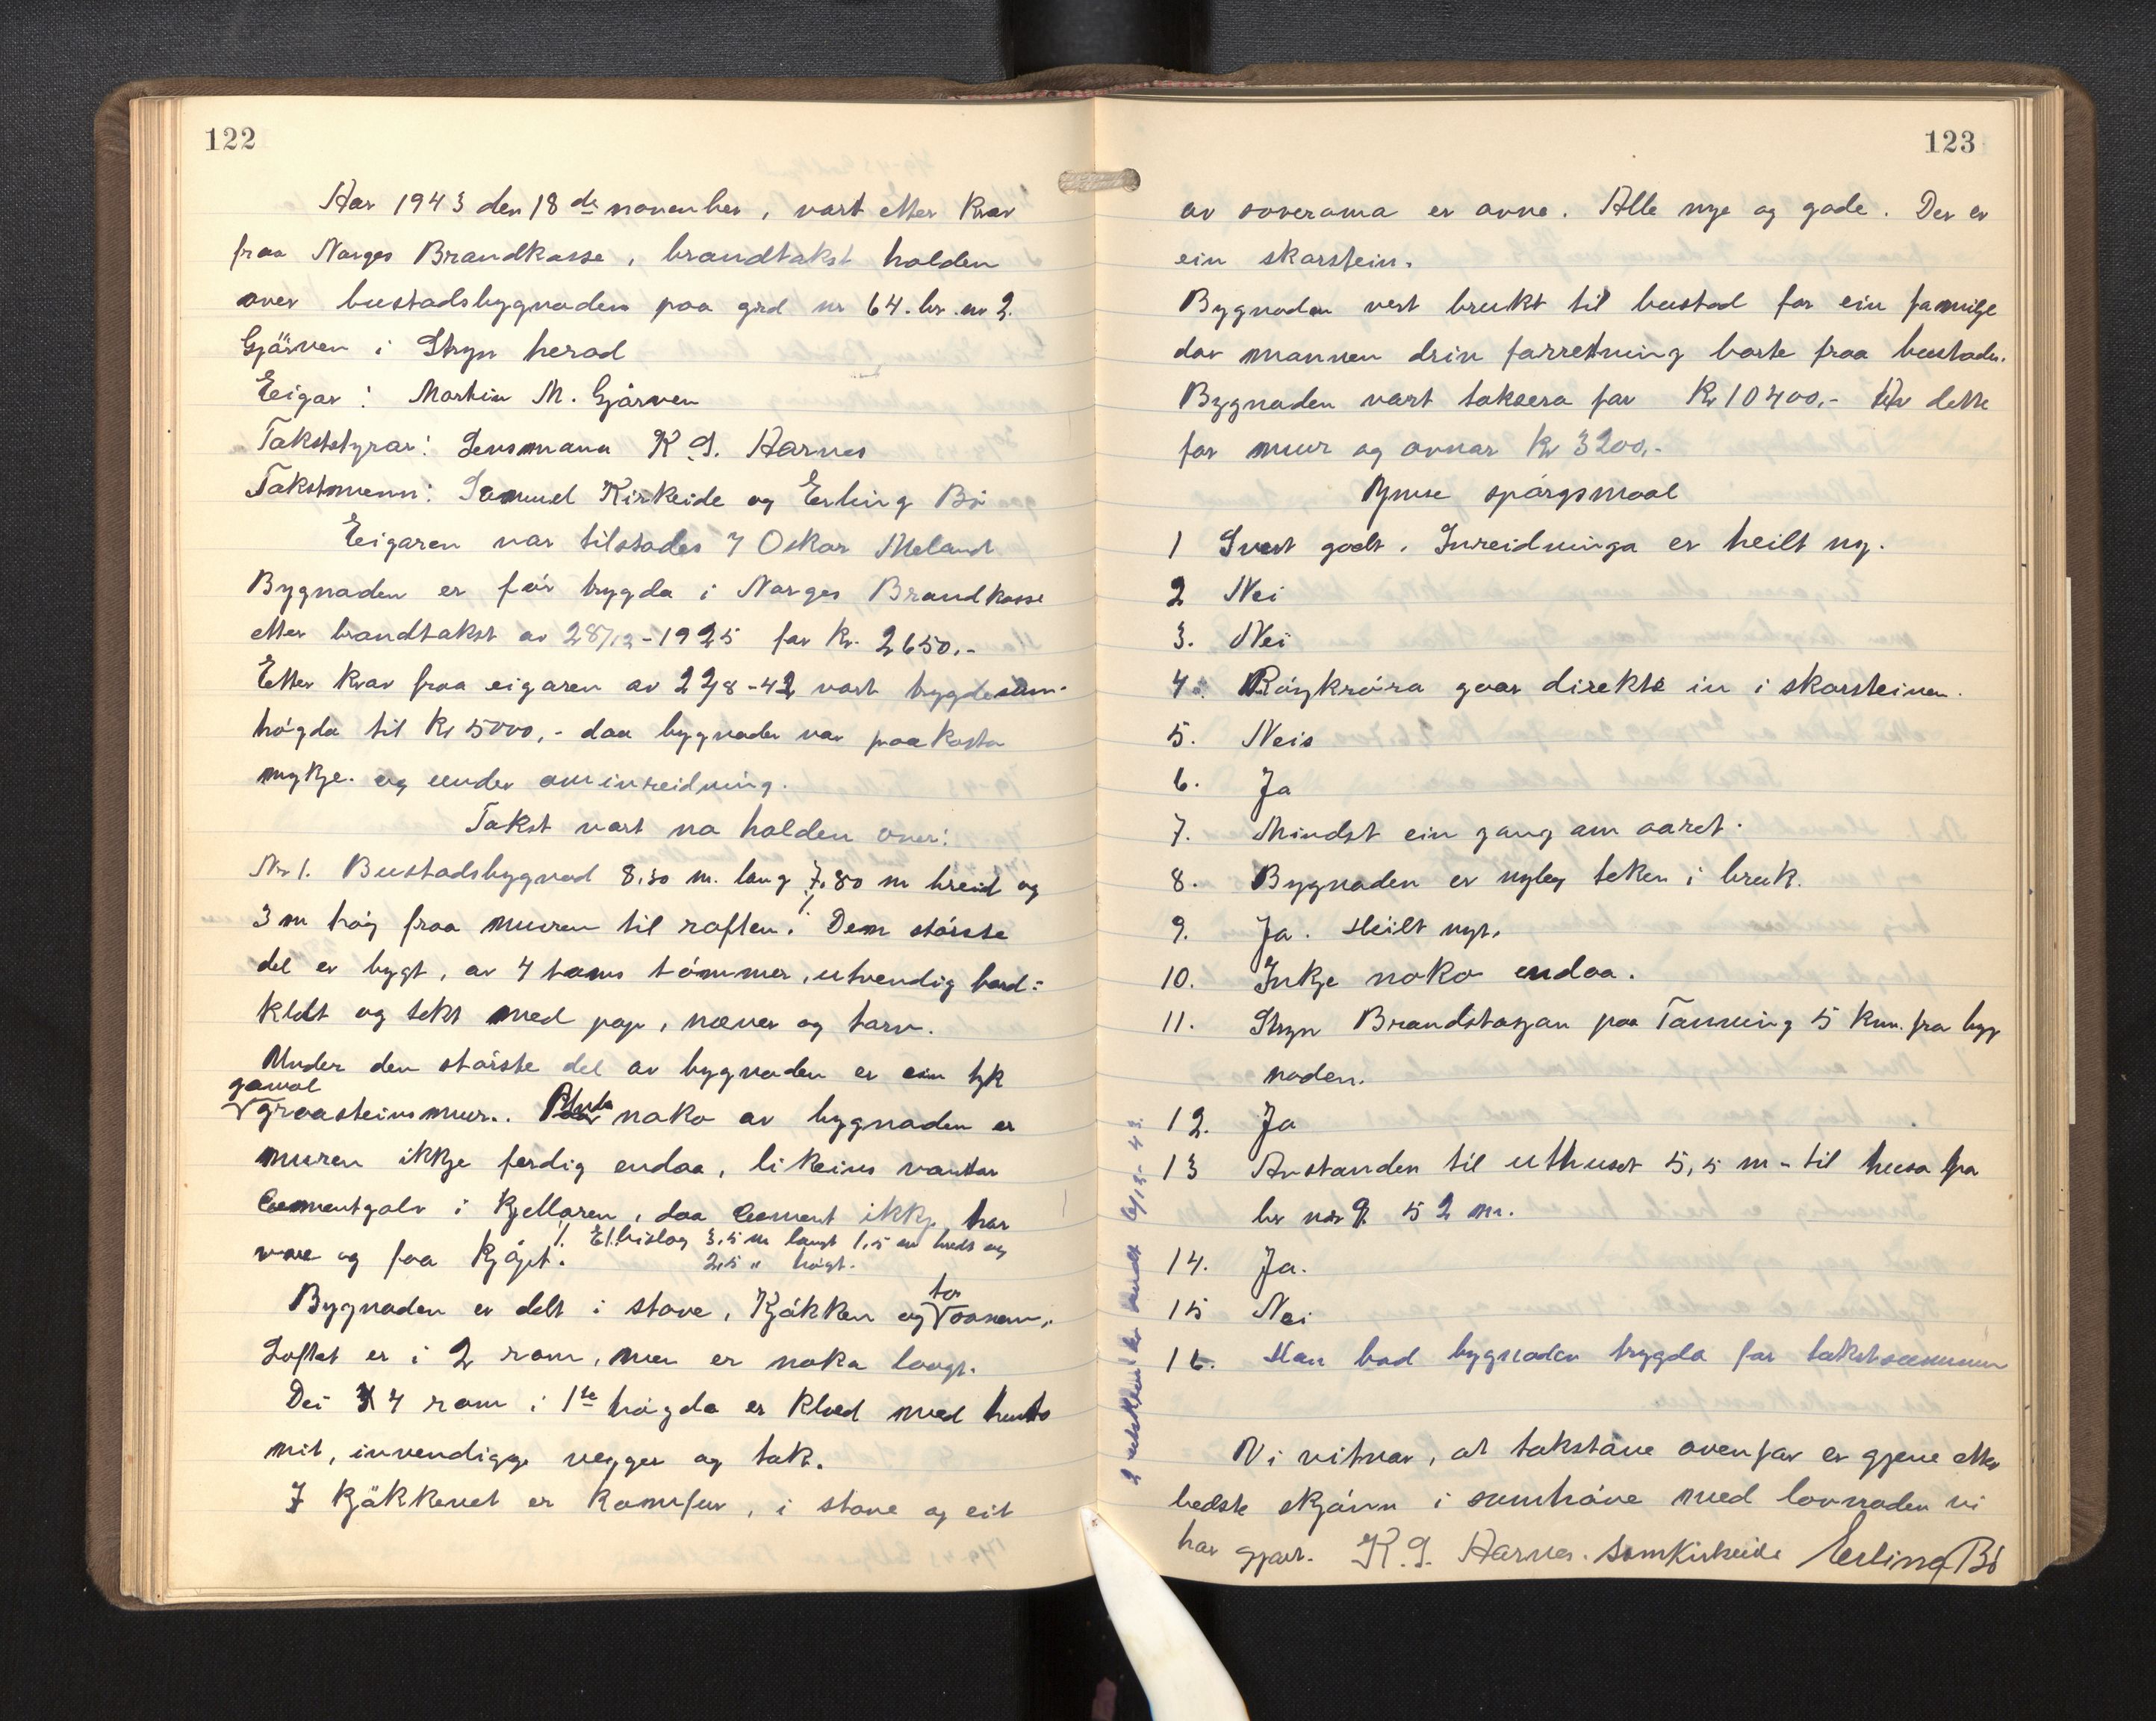 122
Aar 1943 den 18de november, vart etter krav
fraa Norges Brandkasse, brandtakst halden
over bustadsbygnaden paa grd nr 64. br. nr 2.
Gjärven i Stryn herad
Eigar: Martin M. Gjørven
Takststyrar: Lensmann K. J. Aarnes
Takstmenn: Samuel Kirkeide og Erling Bö
Eigaren var tilstades / Oskar Meland
Bygnaden er før trygda i Norges Brandkasse
etter brandtakst av 28/12-1925 for kr. 2650.-
Etter krav fraa eigaren av 22/8-42 vart trygdesum-
høgda til kr 5000,- daa bygnaden var paakosta
mykje. og under ominreidning.
Takst vart no halden over:
Nr 1. Bustadsbygnad 8.30 m. lang 7,80 m breid og
3 m høg fraa muren til raften. Dem største
del er bygt, av 4 toms tømmer, utvendig bord-
kledt og tekt med pap, næver og torv.
Under den største del av bygnaden er ein tyk
gamal
graasteinsmur.. Under noko av bygnaden er
muren ikkje ferdig endaa, likeins vantar
Cementgolv i kjellaren, daa Cement ikkje har
vore og faa kjøpt. ./. Et bislag 3,5 m langt 1,5 m bredt og
2,5 " høgt.
Bygnaden er delt i stove, Kjøkken og to soverom.
Loftet er i 2 rom, men er noko laagt.
Dei 4 rom i 1ste høgda er klæd med hunto
nit, invendigge vegger og tak.
I kjøkkenet er komfur, i stove og eit
123
av soveroma er omne. Alle nye og gode. Der er
ein skorstein.
Bygnaden vert brukt til bustad for ein familje
dar mannen driv forretning borte fraa bustaden.
Bygnaden vart taksera for Kr 10400.- Av dette
for mur og omnar Kr 3200.-
Ymse spørgsmaal
1 Svert godt. Inreidninga er heilt ny.
2 Nei
3. Nei
4. Røykrøra gaar direkte in i skorsteinen.
5. Nei
6. Ja
7. Mindst ein gang om aaret.
8. Bygnaden er nyleg teken i bruk.
9. Ja. Heilt nyt.
10. Inkje noko endaa.
11. Stryn Brandstasjon paa Tonning 5 km. fra byg
naden.
12. Ja
13 Avstanden til uthuset 5,5 m - til husa paa
br nr 9 52 m.
14. Ja.
15 Nei
16. Han bad bygnaden trygda for takstsummen
Vi vitnar, at takstane ovenfor er gjeve etter
bedste skjønn i samhøve med lovnaden vi
har gjort. K. J. Aarnes. SamKirkeide Erling Bö